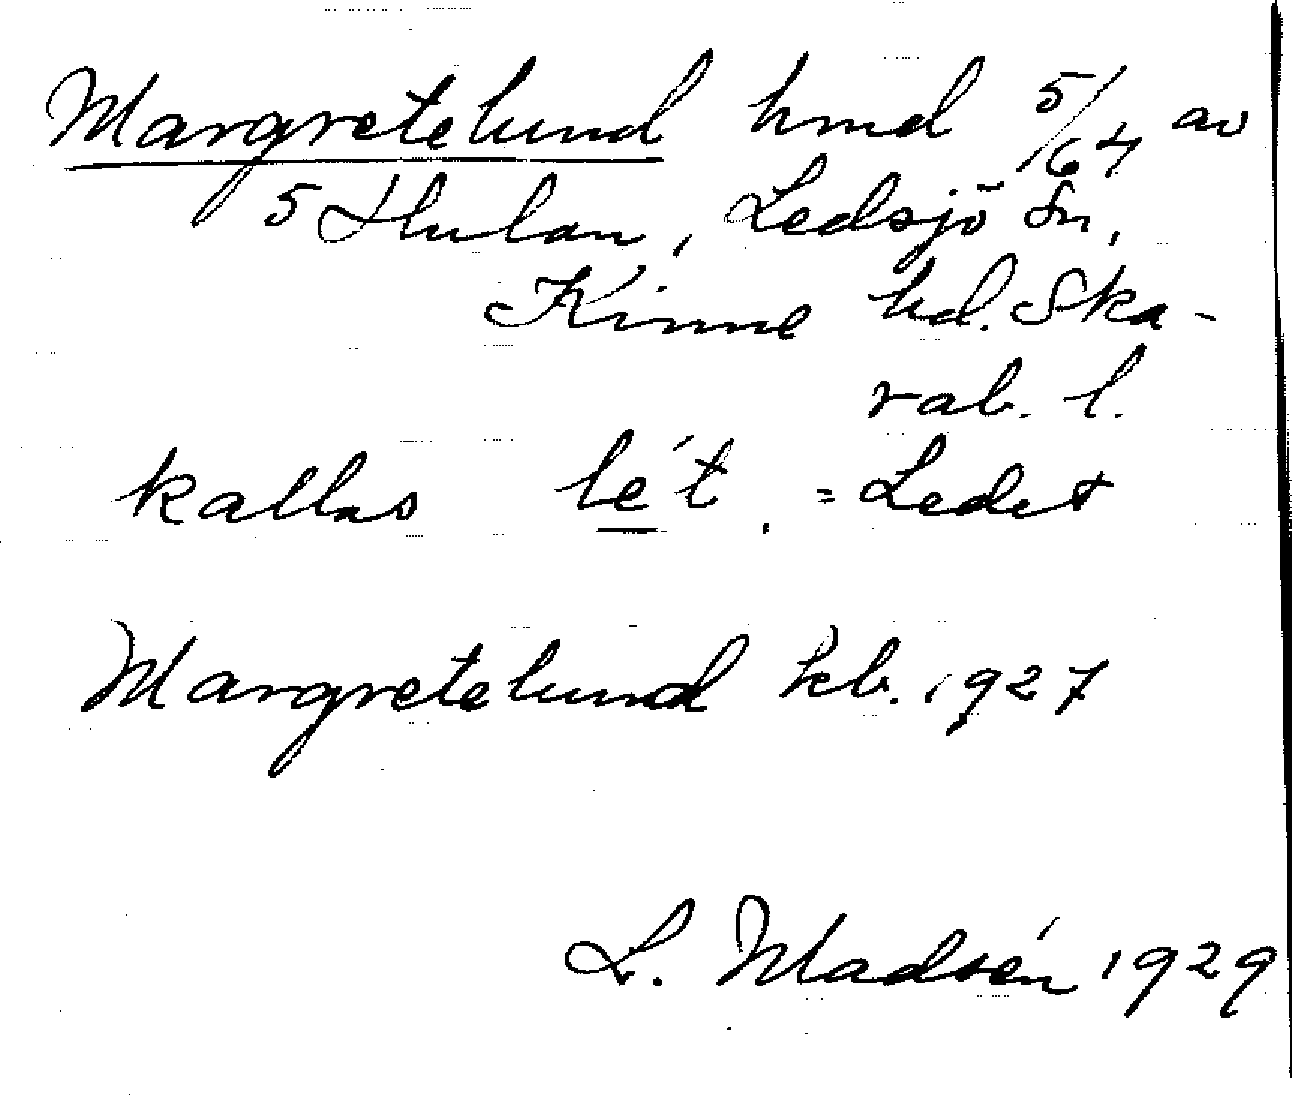 Margretelund hmd 5/64 av
5 Hulan, Ledsjö Sn,
Kinne hd. Ska-
rab. l.
kallas lé't, = Ledet
Margretelund kb. 1927
L. Madsén 1929